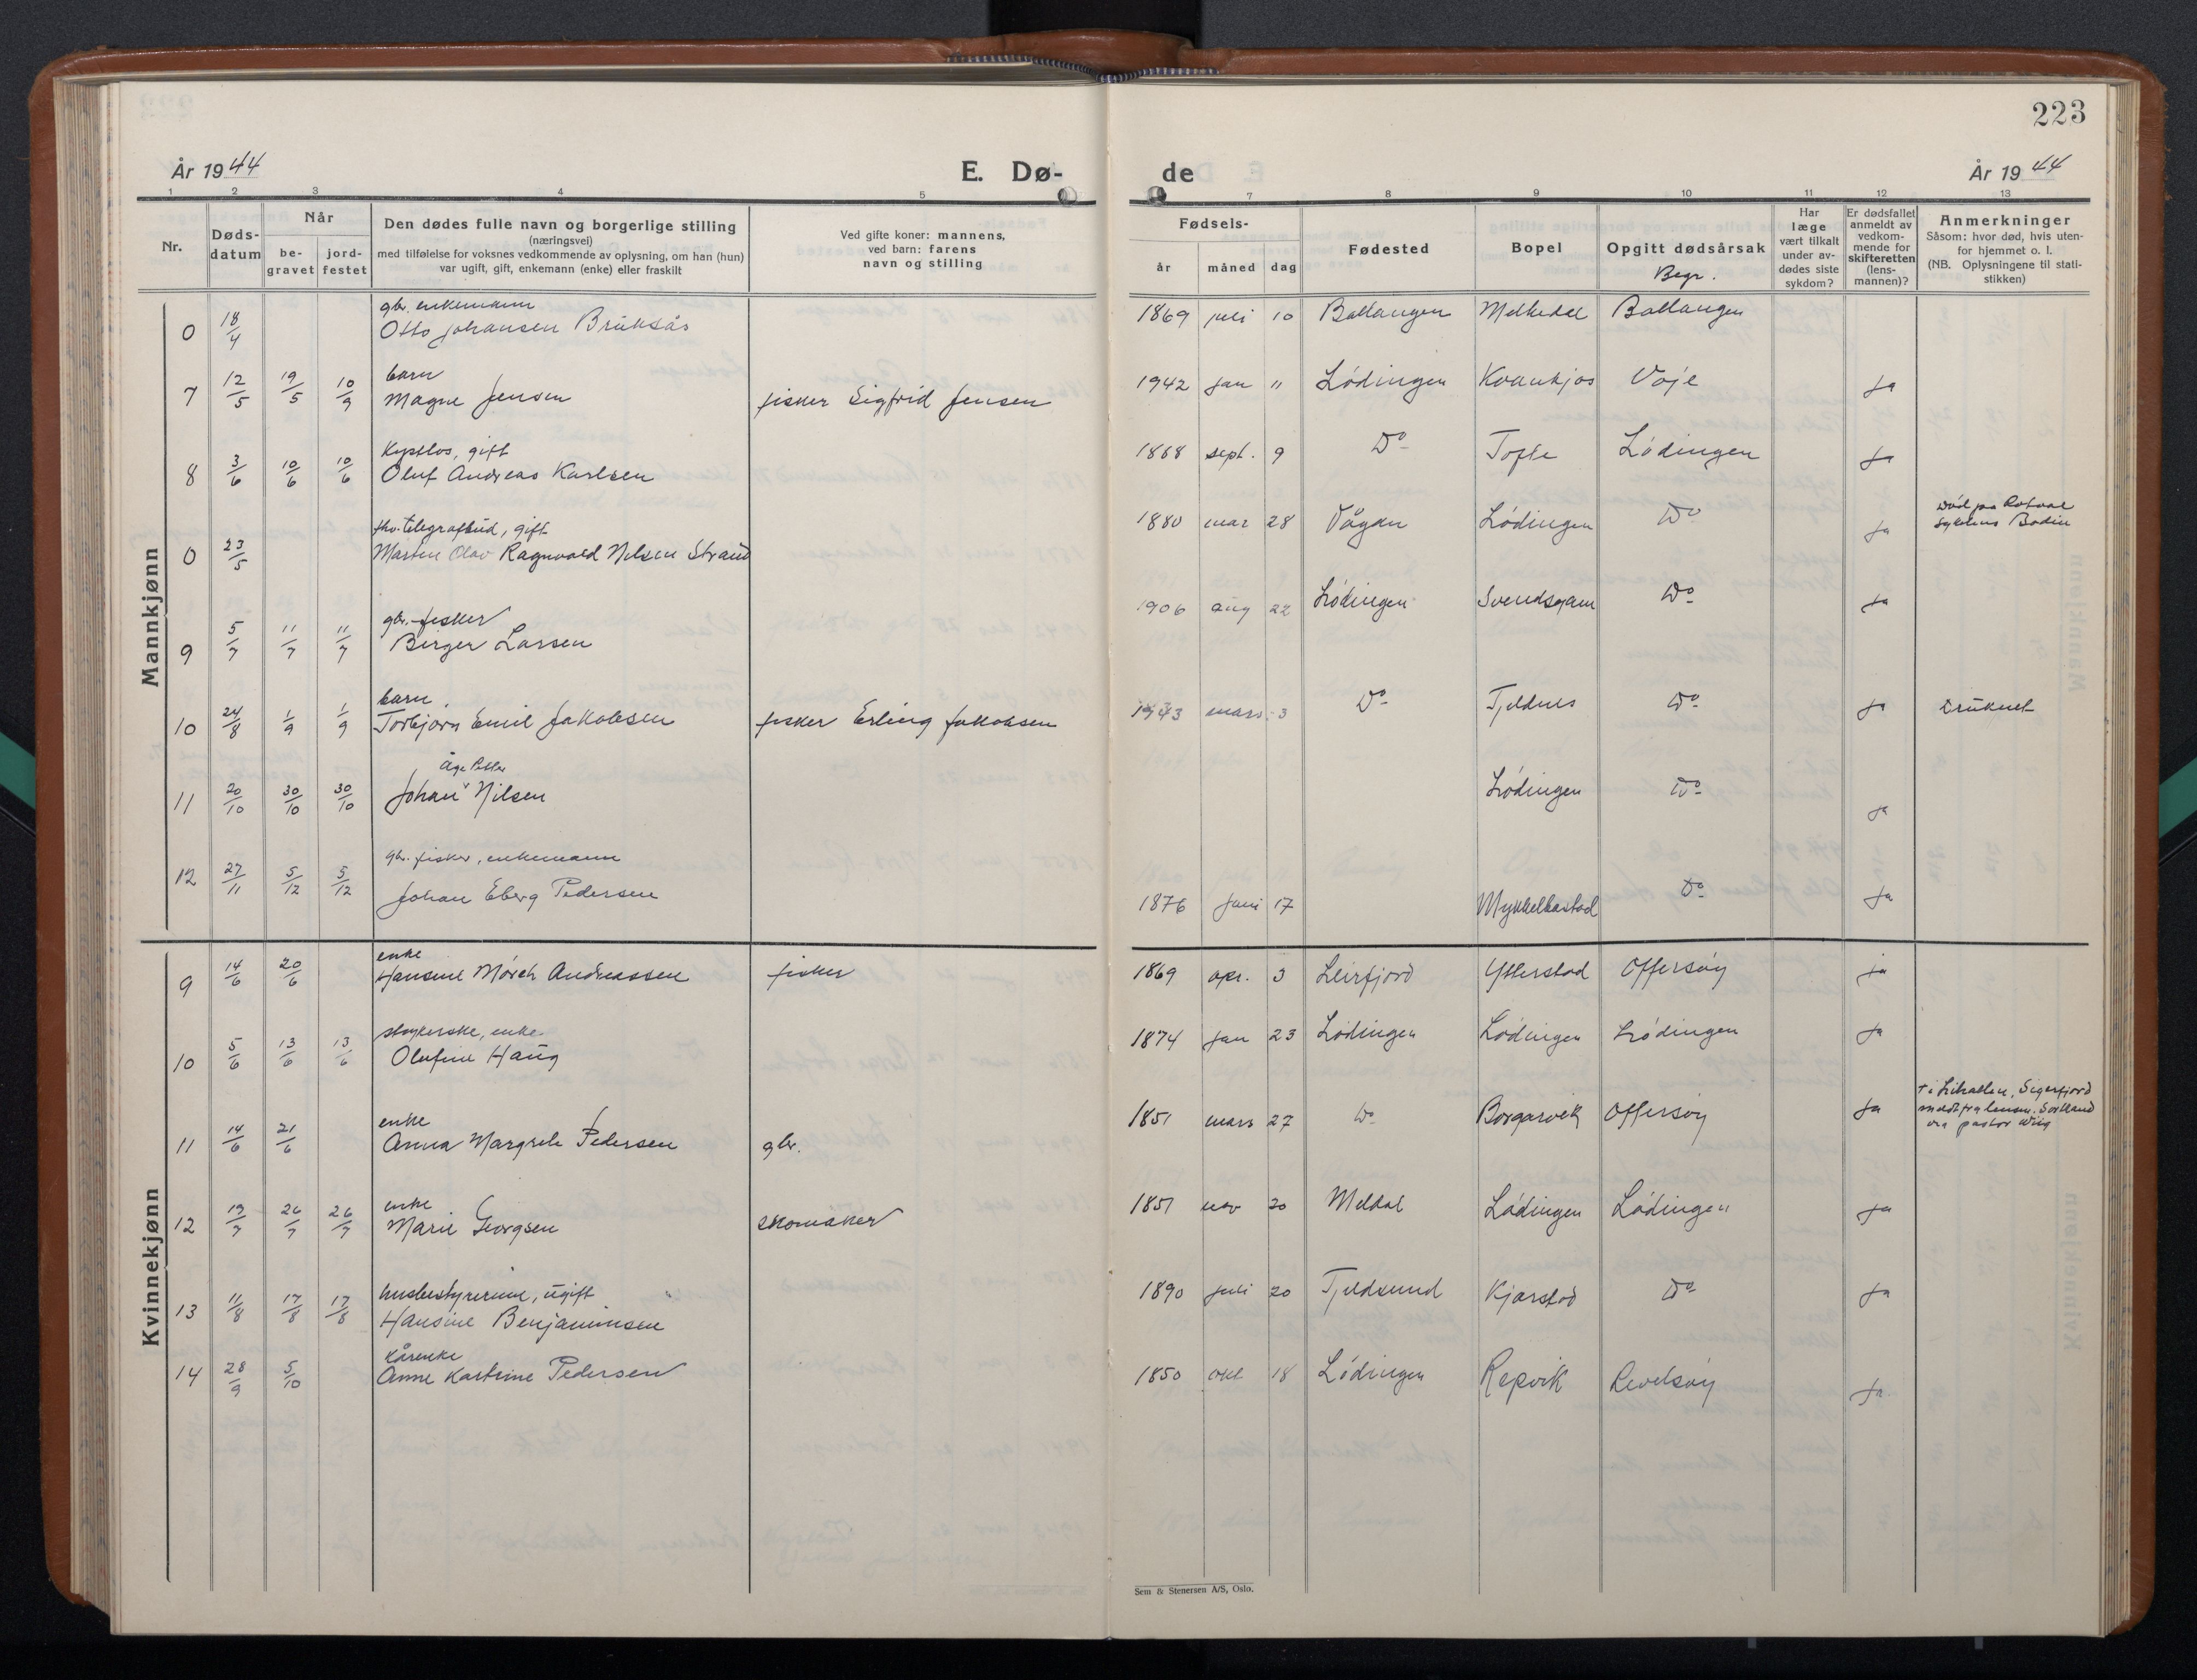 223
År 1944
E. Dø-
de
År 1944
1 2 3 4 5
7 8 9 10 11 12 13
Nr.
Døds-
datum
Når
be-
gravet
jord-
festet
Den dødes fulle navn og borgerlige stilling
(næringsvei)
med tilføielse for voksnes vedkommende av oplysning, om han (hun)
var ugift, gift, enkemann (enke) eller fraskilt
Ved gifte koner: mannens,
ved barn: farens
navn og stilling
Fødsels-
år
måned
dag
Fødested
Bopel
Opgitt dødsårsak
Begr.
Har
læge
vært tilkalt
under av-
dødes siste
sykdom?
Er dødsfallet
anmeldt av
vedkom-
mende for
skifteretten
(lens-
mannen)?
Anmerkninger
Såsom: hvor død, hvis uten-
for hjemmet o. l.
(NB. Oplysningene til stati-
stikken)
Mannkjønn
gbr. enkemann
0 18/4 Otto Johansen Bruksås 1869 juli 10 Ballangen Melkedal Ballangen
barn
7 12/5 19/5 10/9 Magne Jensen fisker Sigfrid Jensen 1942 jan 11 Lødingen Kvannkjos Voje Ja
gift
8 3/6 10/6 10/6 Oluf Andreas Karlsen 1868 sept. 9 Do Tofte Lødingen Ja
fhv. telegrafbud, gift
0 23/5 Martin Olav Ragnvald Nilsen Strand 1880 mar 28 Vågan Lødingen Do Ja
Død på
Bodin
gbr. fisker
9 5/7 11/7 11/7 Birger Larsen 1906 aug 22 Lødingen Svendsgam Do Ja
barn
10 24/8 1/9 1/9 Torbjørn Emil Jakobsen fisker Erling Jakobsen 1943 mars 3 Do Tjeldnes Do Ja Druknet
Åge Petter
11 20/10 30/10 30/10 Johan Nilsen Lødingen Do Ja
gbr. fisker, enkemann
12 27/11 5/12 5/12 Johan Eberg Pedersen 1876 Juni 17 Mykkelbostad Do Ja
Kvinnekjønn
enke
9 14/6 20/6 Hansine Mørch Andreassen fisker 1869 apr. 3 Leirfjord Ytterstad Offersøy ja
enke
10 5/6 13/6 13/6 Olufine Haug 1874 jan 23 Lødingen Lødingen Lødingen Ja
enke
11 14/6 21/6 Anna Margrete Pedersen gbr. 1851 mars 27 Do Borgarvik Offersøy Ja
Sigerfjord
meldt fra lensm. Sortland
via pastor
enke
12 19/7 26/7 26/7 Marie Georgsen skomaker 1851 nov 20 Meldal Lødingen Lødingen Ja
husbestyrerinne, ugift
13 11/8 17/8 17/8 Hansine Benjaminsen 1890 juli 20 Tjeldsund Kjørstad Do Ja
Kårenke
14 28/9 5/10 Anne Kartrine Pedersen 1850 okt 18 Lødingen Repvik Revelsøy Ja
Sem & Stenersen A/S, Oslo.